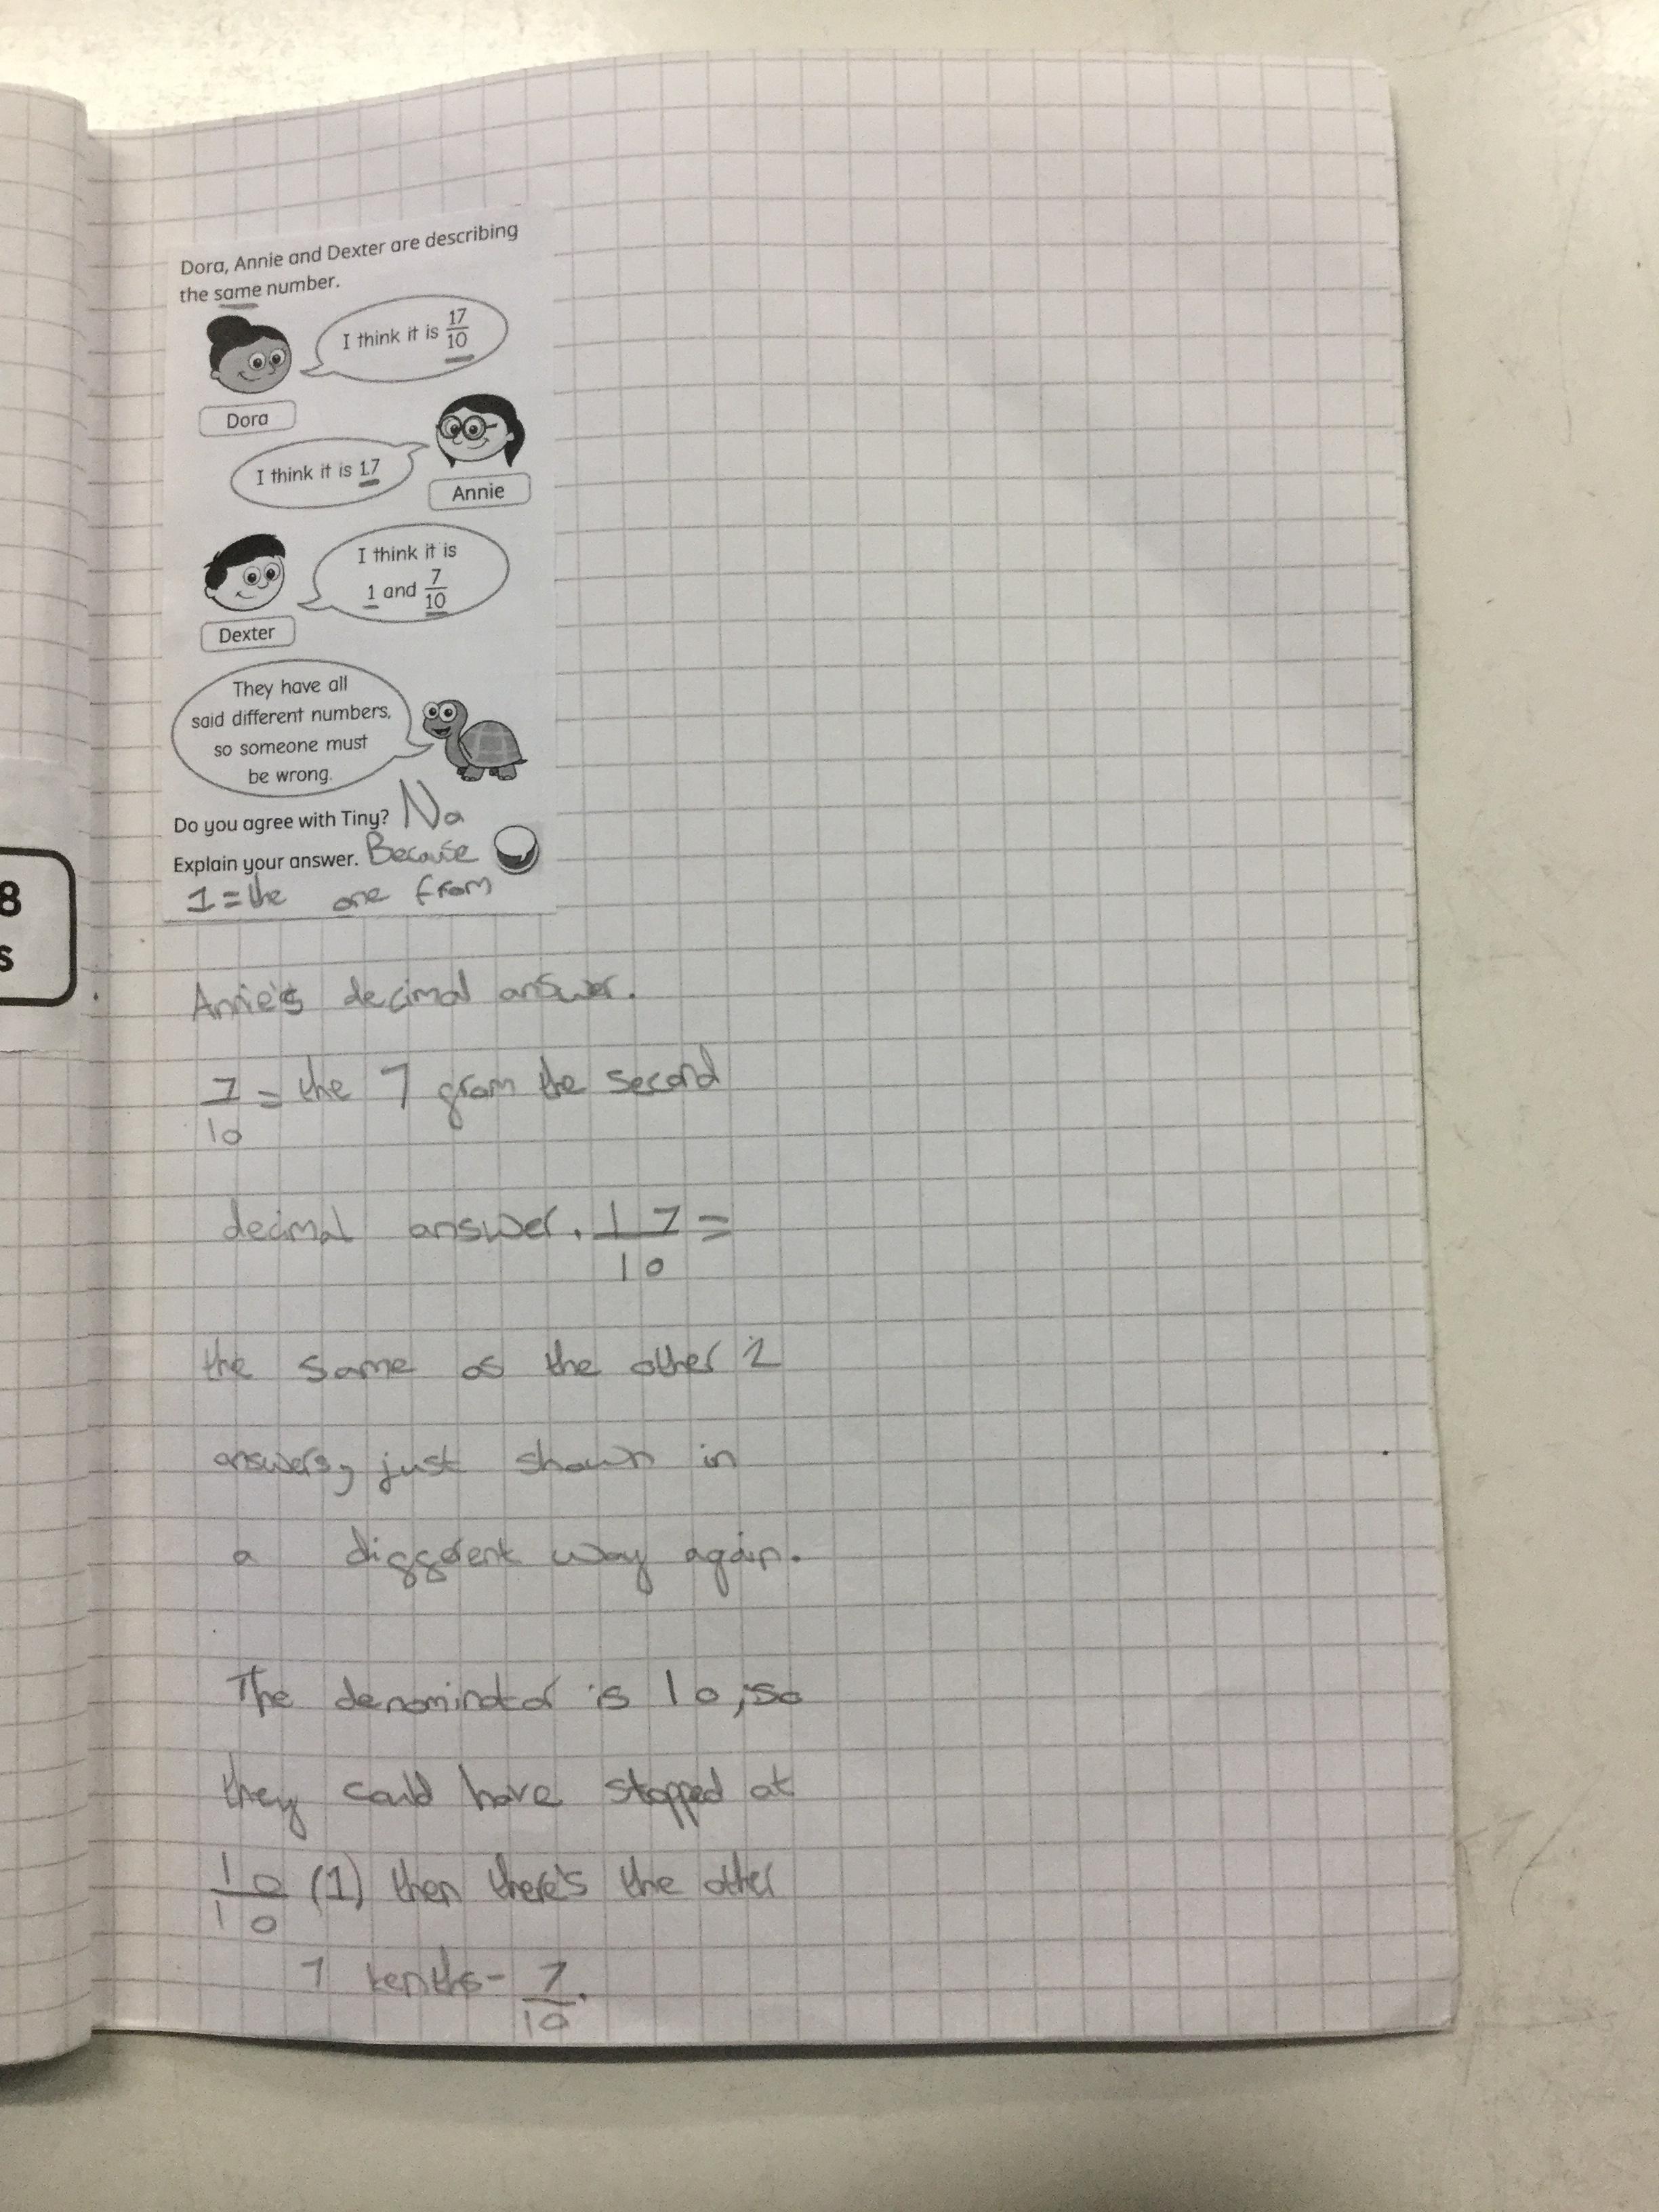 Dora, Annie and Dexter are describing
the same number.
I think it is 17/10
Dora
I think it is 1.7
Annie
I think it is
1 and 7/10
Dexter
They have all
said different numbers,
so someone must
be wrong.
Do you agree with Tiny? No
Explain your answer. Because
1 = the one from
Annie's decimal answer.
7/10 = the 7 from the second
decimal answer. 17/10 =
the same as the other 2
answers, just shown in
a different way again.
The denominator is 10, so
they could have stopped at
10/10 (1) then there's the other
7 tenths - 7/10.
8
s